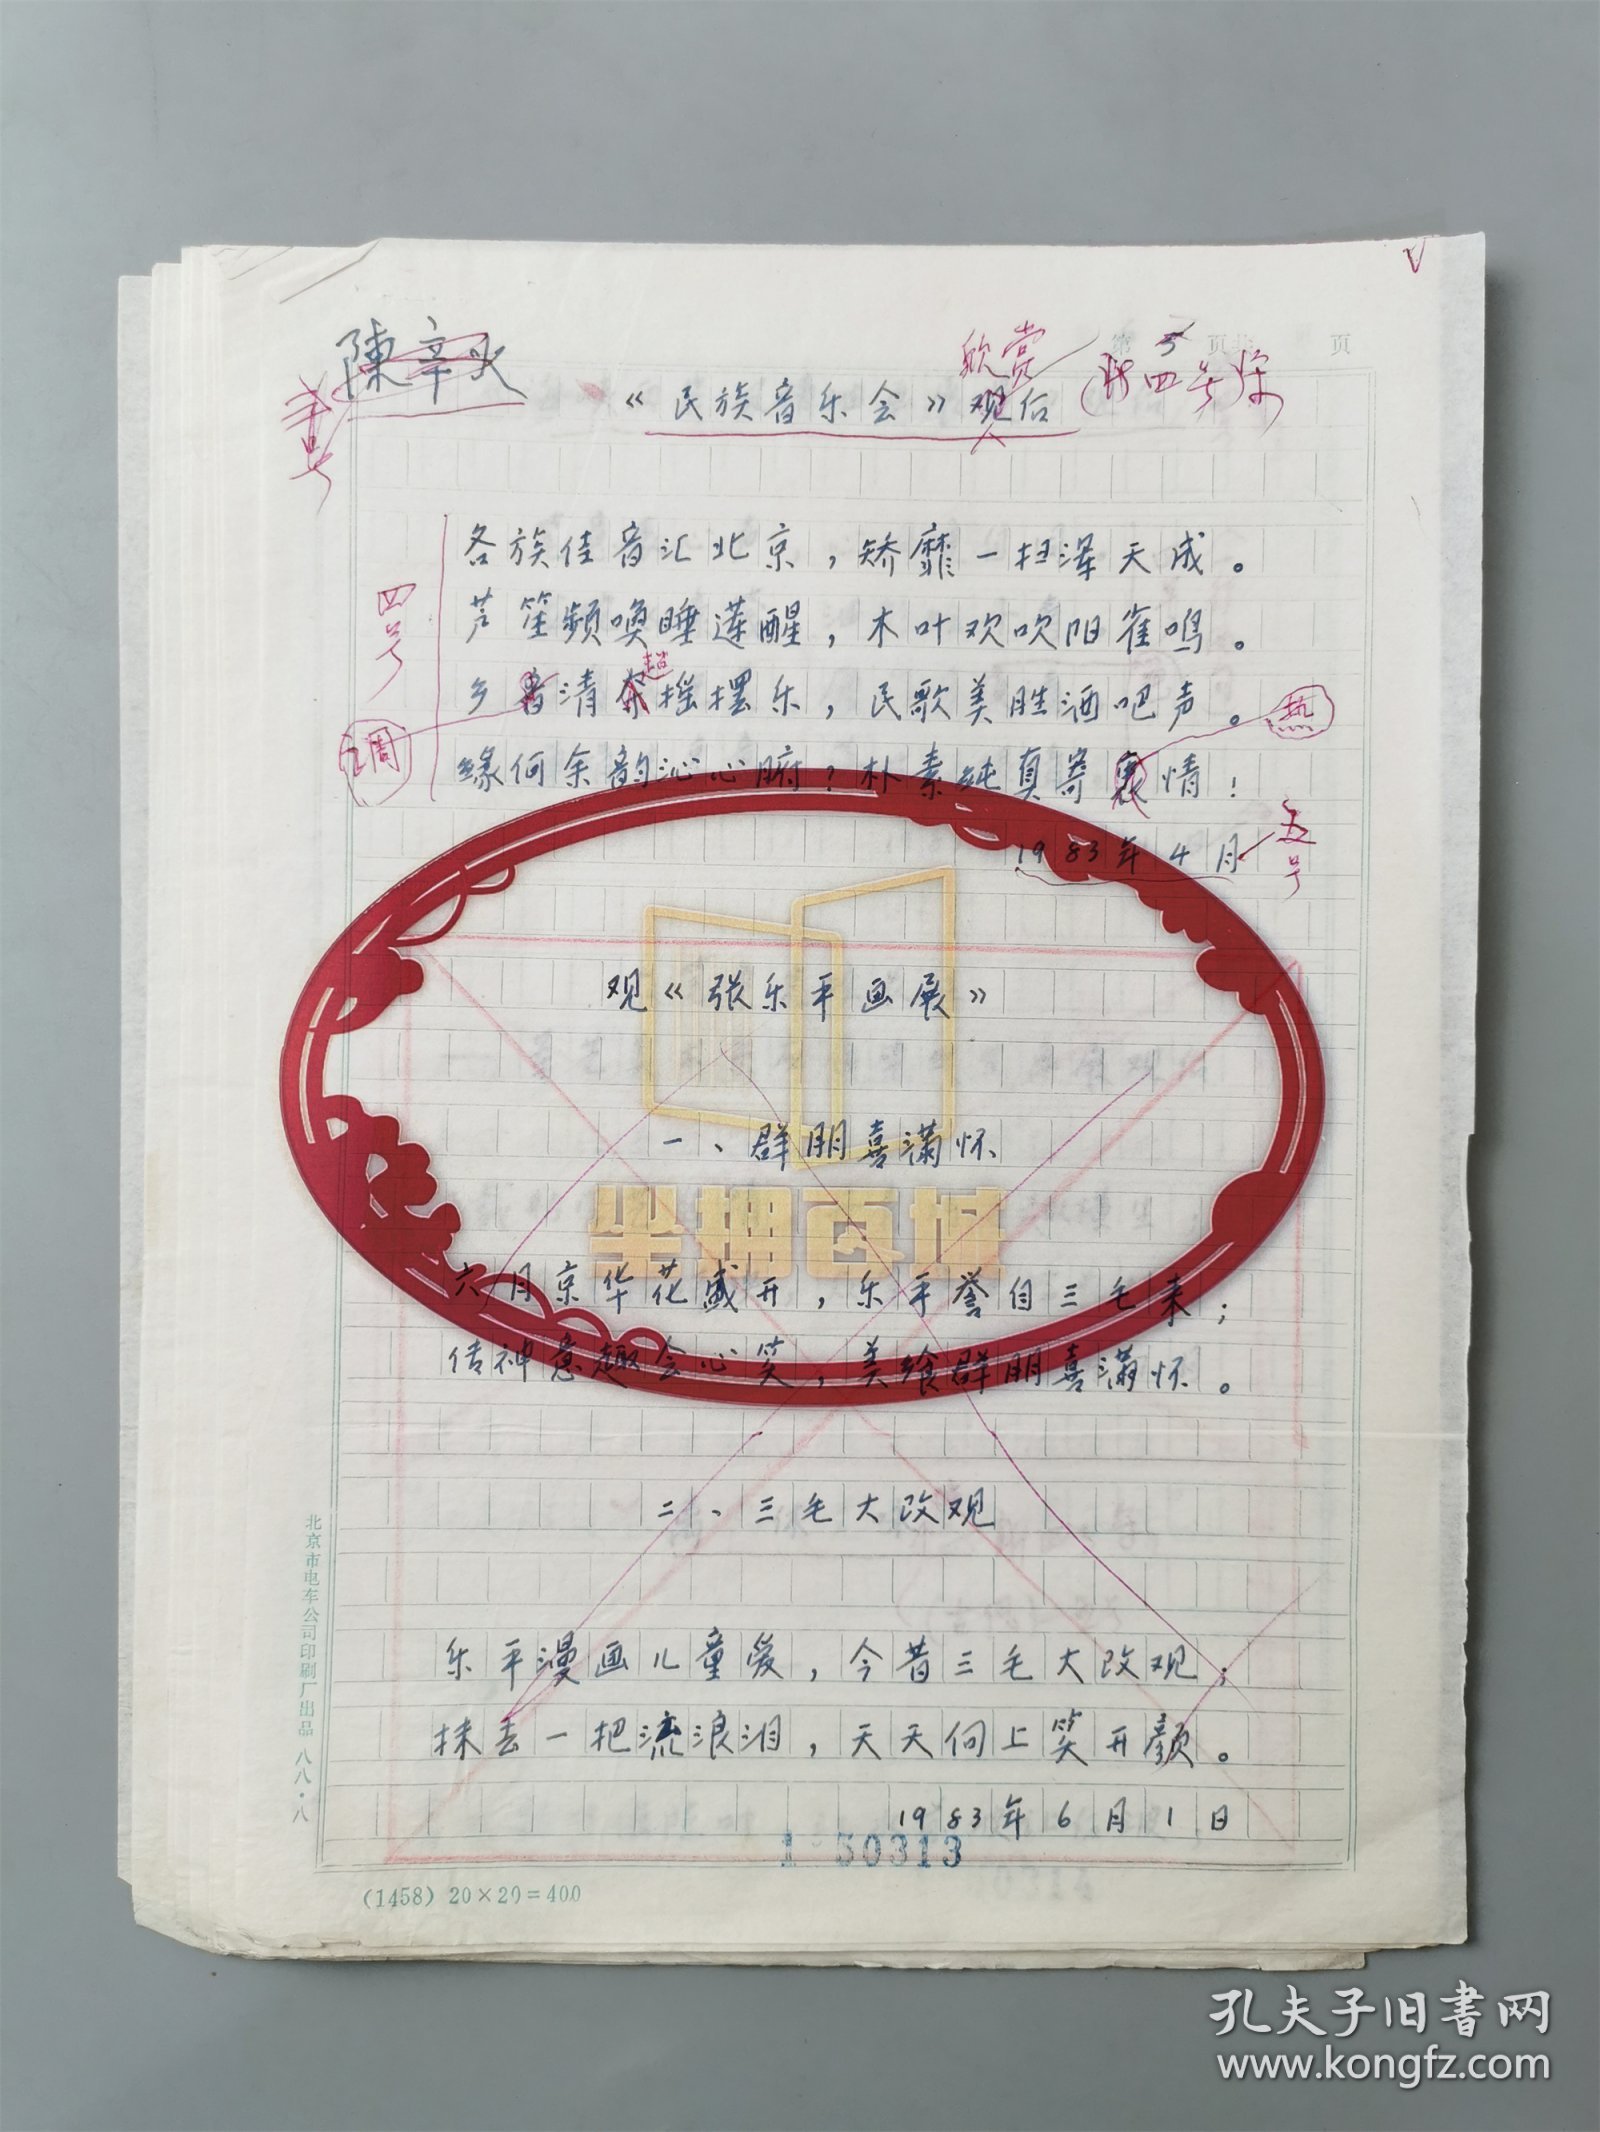 陳辛火
欣赏
第 5 页共 页
《民族音乐会》观后
各族佳音汇北京，矫靡一扫泽天成。
芦笙频唤睡莲醒，木叶欢吹阳雀鸣。
四号
超
乡音清夺摇摆乐，民歌美胜酒吧声。
热
调
缘何余韵沁心腑？朴素纯真寄衷情！
1983年4月
五号
观《张乐平画展》
一、群朋喜满怀
半拥百城
六月京华花盛开，乐平誉自三毛来；
传神意趣会心笑，美飨群朋喜满怀。
二、三毛大改观
乐平漫画儿童爱，今昔三毛大改观；
抹去一把流浪泪，天天向上笑开颜。
1983年6月1日
1 50313
(1458) 20×20=400
北京市电车公司印刷厂出品 八八·八
孔夫子旧书网
www.kongfz.com